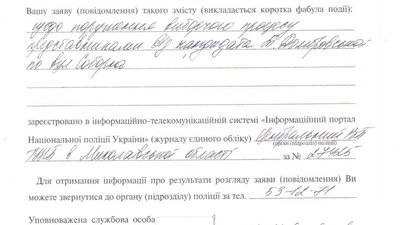 Вашу заяву (повідомлення) такого змісту (викладається коротка фабула події):
щодо порушення виборчого процесу
представниками від кандидата
по вул Соборна
зареєстровано в інформаційно-телекомунікаційній системі «Інформаційний портал
Національної поліції України» (журналу єдиного обліку) Центральний ВП
(орган (підрозділ) поліції)
в Миколаївській області за № 27425
Для отримання інформації про результати розгляду заяви (повідомлення) Ви
можете звернутися до органу (підрозділу) поліції за тел. 53-12-71
Уповноважена службова особа